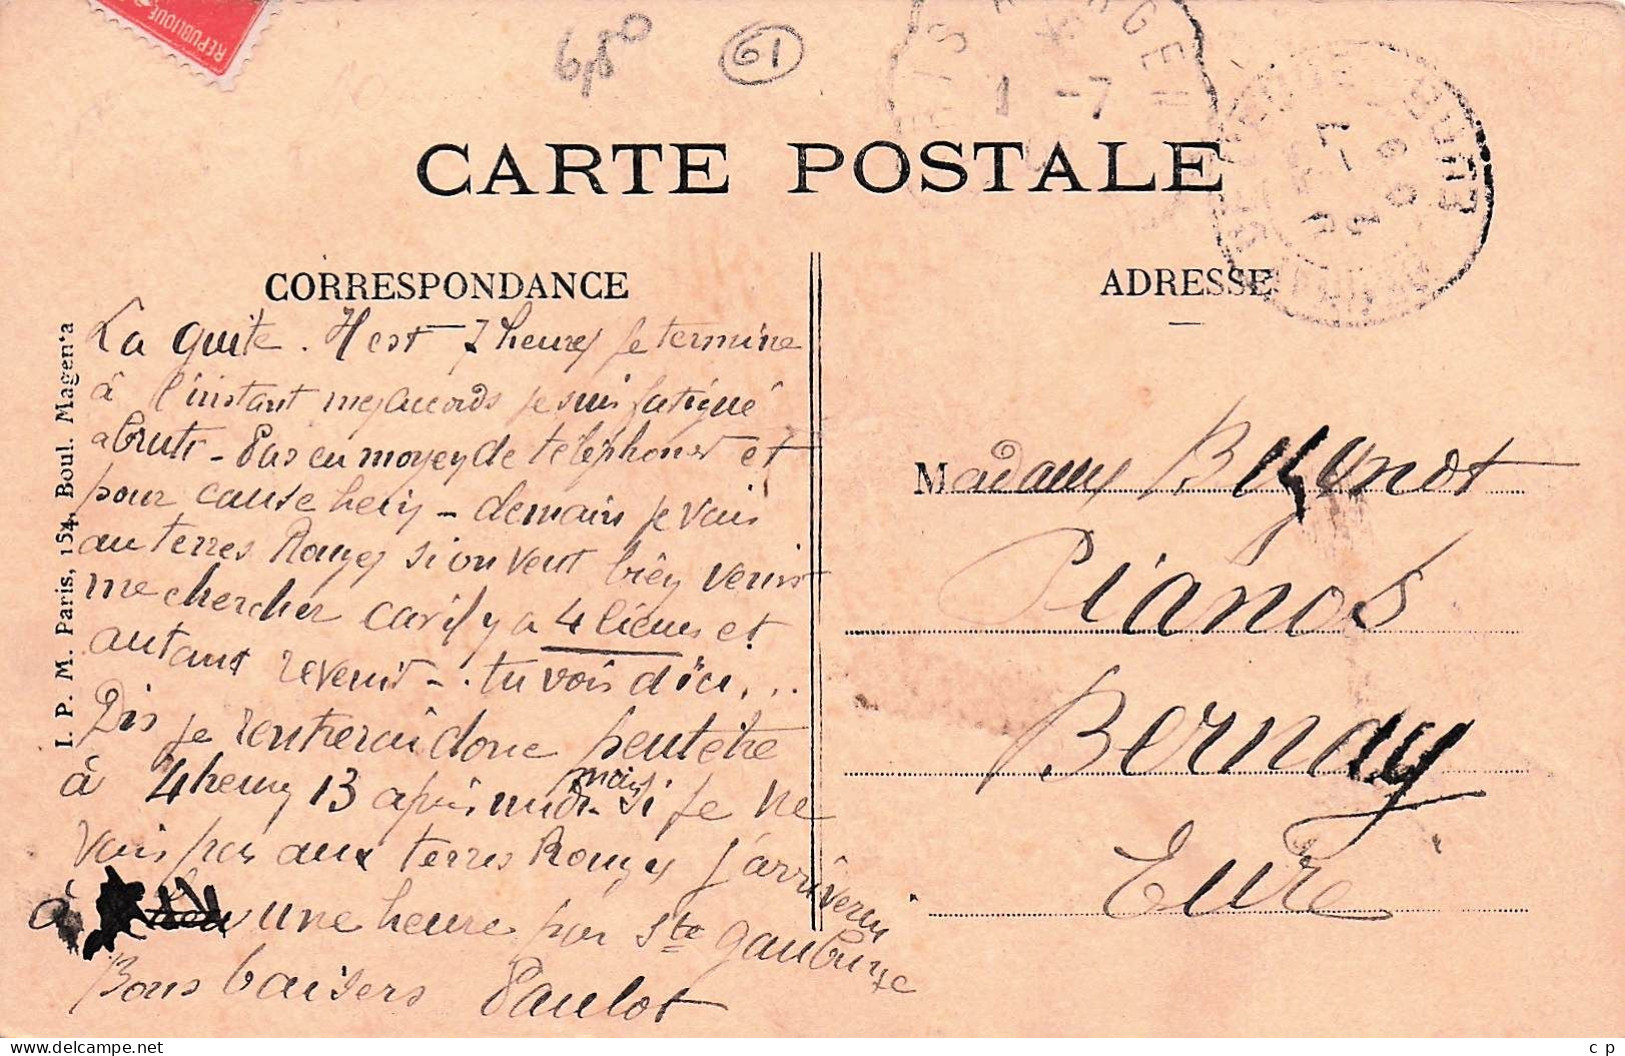 REPUBLIQUE
61
1 -7
CARTE POSTALE
CORRESPONDANCE
ADRESSE
I. P. M. Paris, 154, Boul. Magenta
La guite. Il est 7 heures je termine
à l'instant mes accords je suis fatigué
abruti - Pas eu moyen de téléphoner et
pour cause hein - demain je vais
au terres Rouges si on veut bien venir
me chercher car il y a 4 lieues et
autant revenir - . tu vois d'ici ...
Dis je rentrerai donc peut etre
à 4 heures 13 après midi - mais si je ne
vais pas aux terres Rouges j'arriverai
à une heure par Ste gauburge
Bons baisers Paulot
Madame Bizynot
Pianos
Bernay
Eure